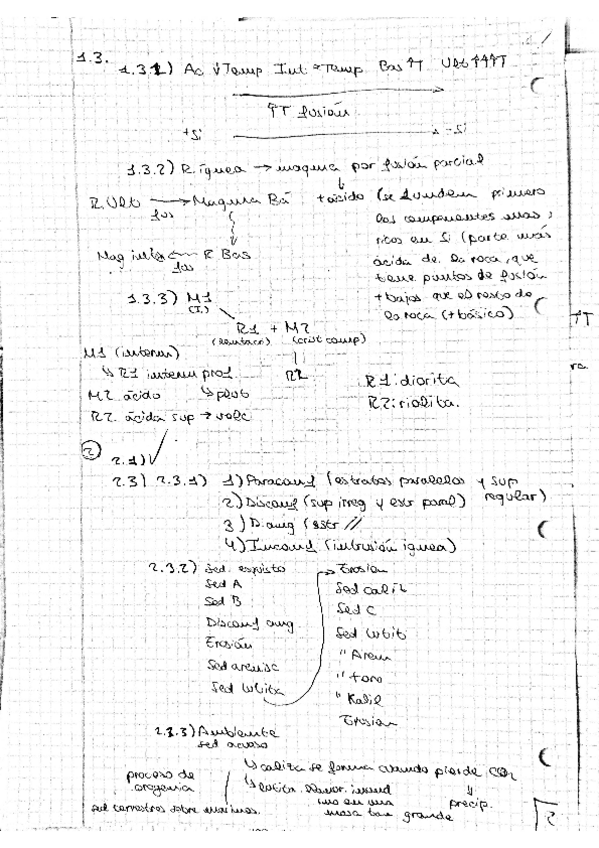 1.3.
1.3.1) Ac ↓Temp Int ≈Temp Bas ↑T Ult ↑↑↑T
↑T fusión
+Si - Si
1.3.2) R. ígnea → magma por fusión parcial
R. Ult → Magma Bá + ácido (se funden primero
fus los componentes mas
ricos en Si (parte más
Mag inter ← R Bas ácida de la roca, que
fus tiene puntos de fusión
+ bajos que el resto de
1.3.3) M1 la roca (+ básico)
(I.)
R1 + M2
(crist comp)
M1 (interm)
↳ R1 interm R2
M2 ácido ↳ plut R1: diorita
R2. ácida sup → volc R2: riolita.
2
2.1) √
2.3) 2.3.1) 1) Paraconf (estratos paralelos y sup
regular)
2) Disconf (sup irreg y estr paral)
3) D. ang (estr //
4) Inconf (intrusión ígnea)
2.3.2) Sed. esquisto
Sed A
Sed B
Disconf ang
Erosión
Sed arenisc
→ Erosion
Sed caliz
Sed C
" Aren
Erosion
2.3.3) Ambiente
sed acuoso
↳ caliza se forma cuando pierde CO2
proceso de
orogenia
precip.
sed terrestres sobre marinos.
masa tan grande